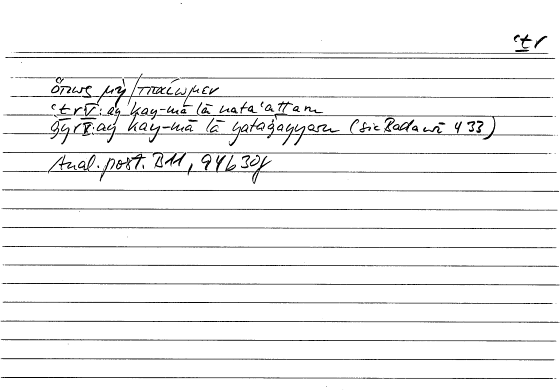 ʿṯr
ὅπως μὴ/πταίωμεν
ʿṯr V: ay kay-mā lā nataʿaṯṯara
ġyr V: ay kay-mā lā yataġayyara (sic Badawī 433)
Anal. post. B11, 94b30f